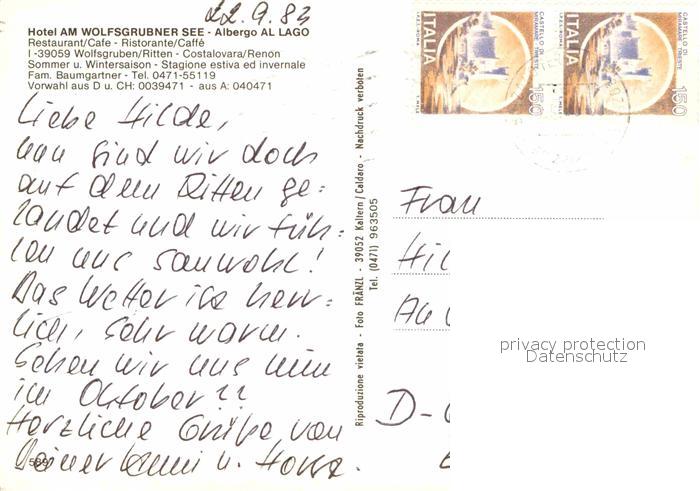 22.9.83
Hotel AM WOLFSGRUBNER SEE - Albergo AL LAGO
Restaurant/Cafe - Ristorante/Caffé
I -39059 Wolfsgruben/Ritten - Costalovara/Renon
Sommer u. Wintersaison - Stagione estiva ed invernale
Fam. Baumgartner - Tel. 0471-55119
Vorwahl aus D u. CH: 0039471 - aus A: 040471
Liebe Hilde,
nun sind wir doch
auf dem Ritten ge:
landet und wir füh:
len uns sauwohl!
Das Wetter ist herr:
lich, sehr warm.
Sehen wir uns nun
im Oktober??
Herzliche Grüße von
Deiner u. Horst.
Riproduzione vietata - Foto FRÄNZL - 39052 Kaltern/Caldaro - Nachdruck verboten
Tel. (0471) 963505
ITALIA
CASTELLO DI
MIRAMARE · TRIESTE
150
ITALIA
CASTELLO DI
MIRAMARE · TRIESTE
150
Frau
Hil
D-
privacy protection
Datenschutz